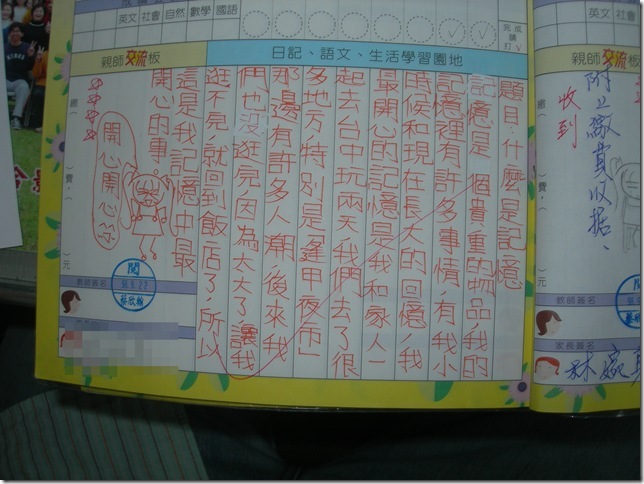 英文
社會
自然
數學
國語
完成請打✓
日記、語文、生活學習園地
親師交流板
題目:什麼是記憶
記憶是一個貴重的物品,我的
記憶裡有許多事情,有我小
時候和現在長大的回憶,我
最開心的記憶是我和家人一
起去台中玩兩天,我們去了很
多地方,特別是「逢甲夜市」
那邊有許多人潮,後來我
們也沒逛完因為太大了,讓我
逛不完,就回到飯店了,所以
這是我記憶中最
開心的事
開心開心
繳(
)費,(
)元
教師簽名
閱
英文
社會
自然
親師交流板
附上繳費收据、
收到
元
教師簽名
家長簽名